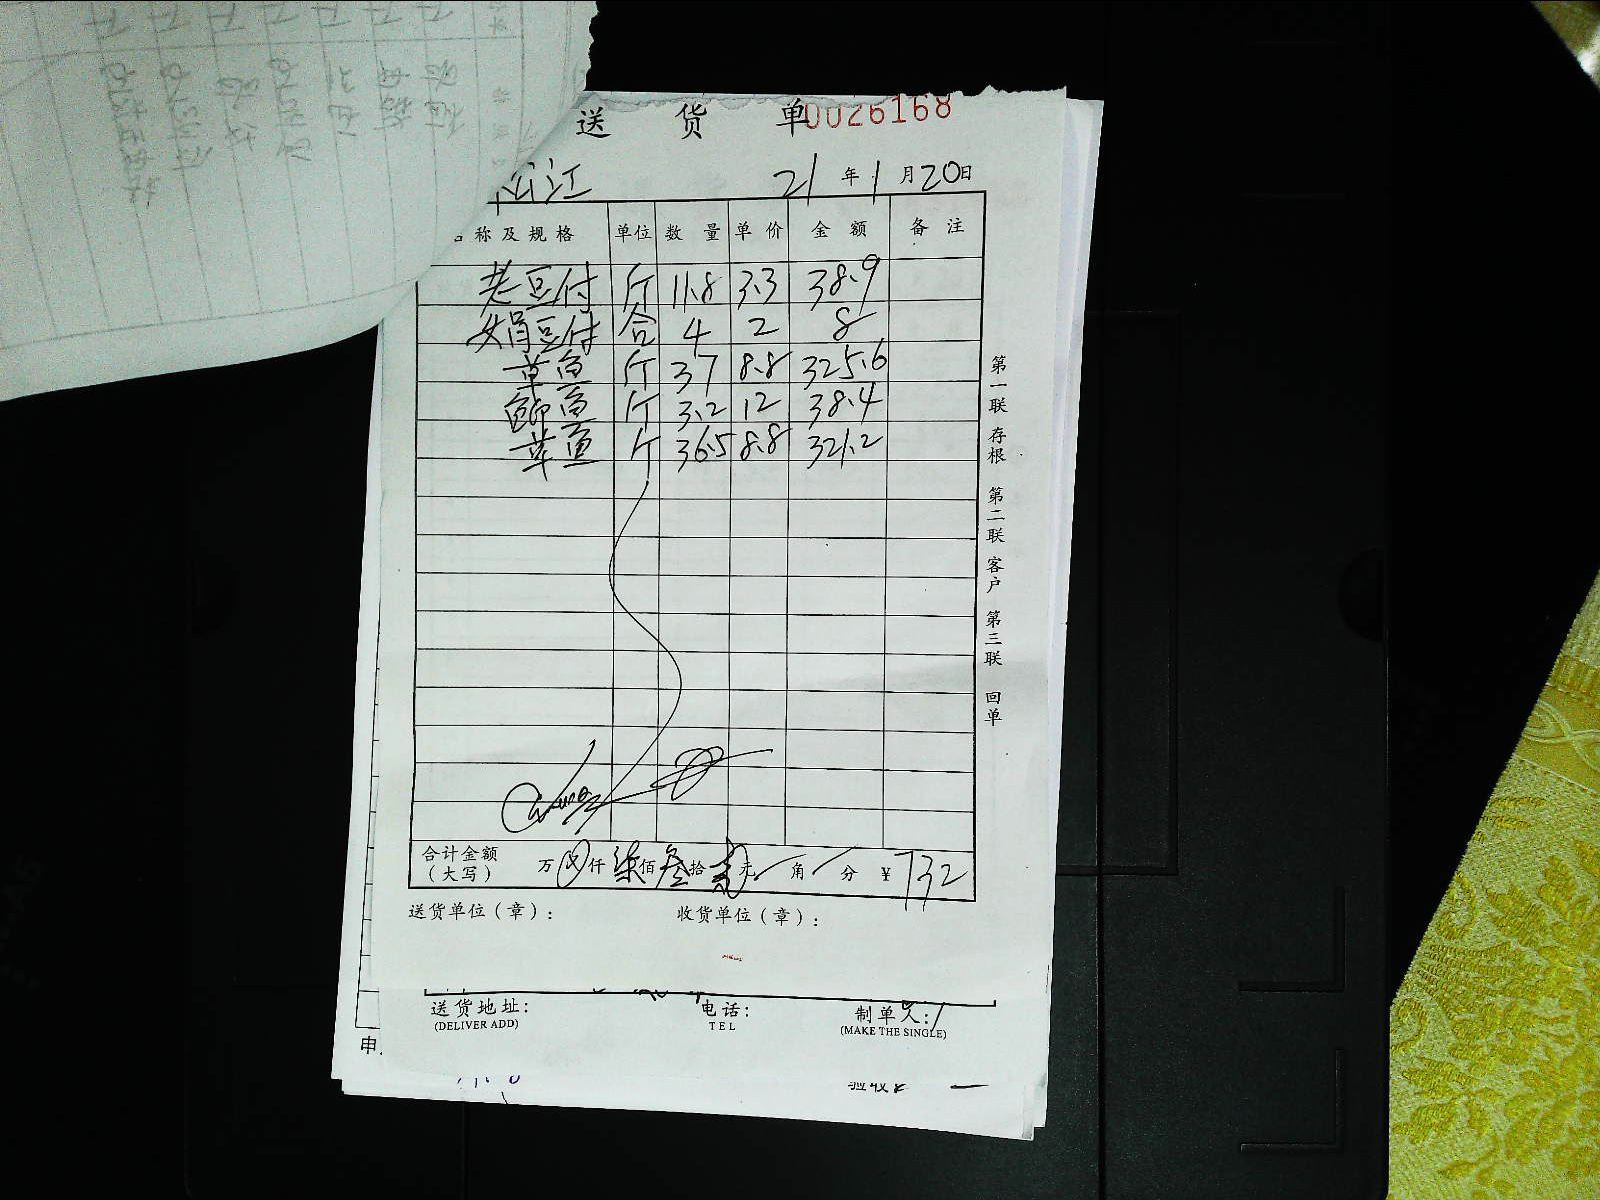 送 货 单 0026168
江 21 年 1 月 20 日
称及规格 单位 数量 单价 金额 备注
老豆付 斤 11.8 3.3 38.9
娟豆付 合 4 2 8
草鱼 斤 37 8.8 325.6
鲫鱼 斤 3.2 12 38.4
草鱼 斤 36.5 8.8 321.2
合计金额（大写） 万 仟 柒佰 叁拾 贰元 角 分 ¥ 732
送货单位（章）： 收货单位（章）：
第一联 存根 第二联 客户 第三联 回单
送货地址： 电话： 制单人：
(DELIVER ADD) TEL (MAKE THE SINGLE)
申
验收